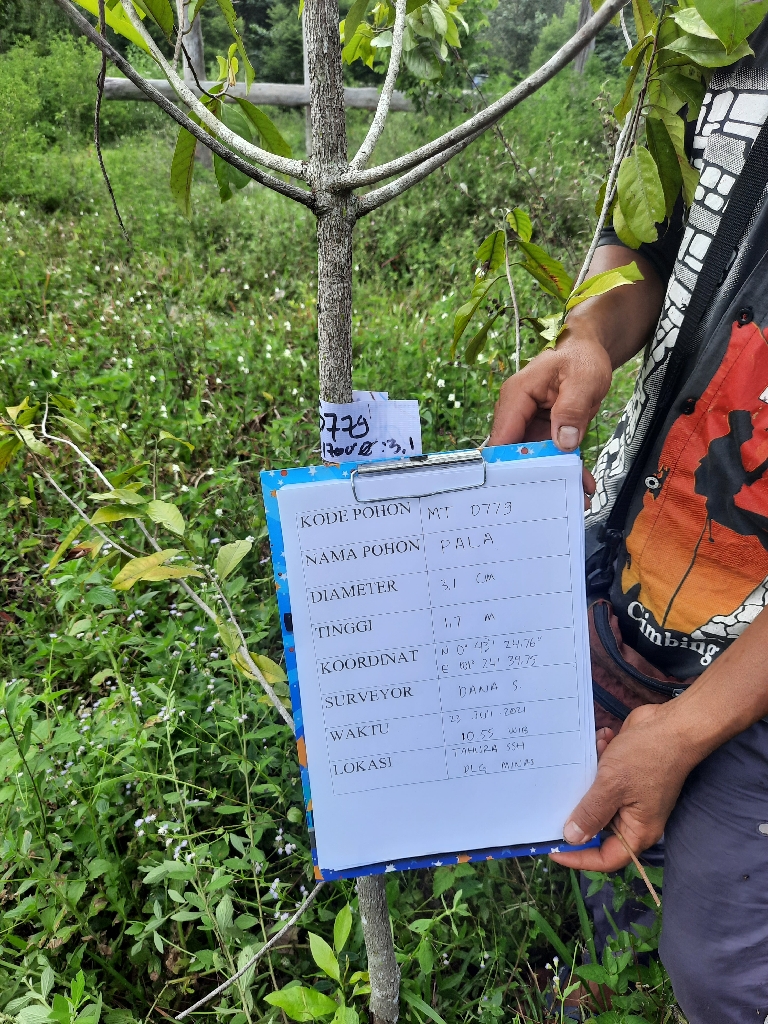 0779
KODE POHON MT 0779
NAMA POHON PALA
DIAMETER 3,1 CM
TINGGI 1.7 M
KOORDINAT N 0° 43' 24.76"
24' 39.75
SURVEYOR DANA S.
WAKTU 23 2021
10.55 WIB
LOKASI TAHURA SSH
PLG MINAS
Cimbing